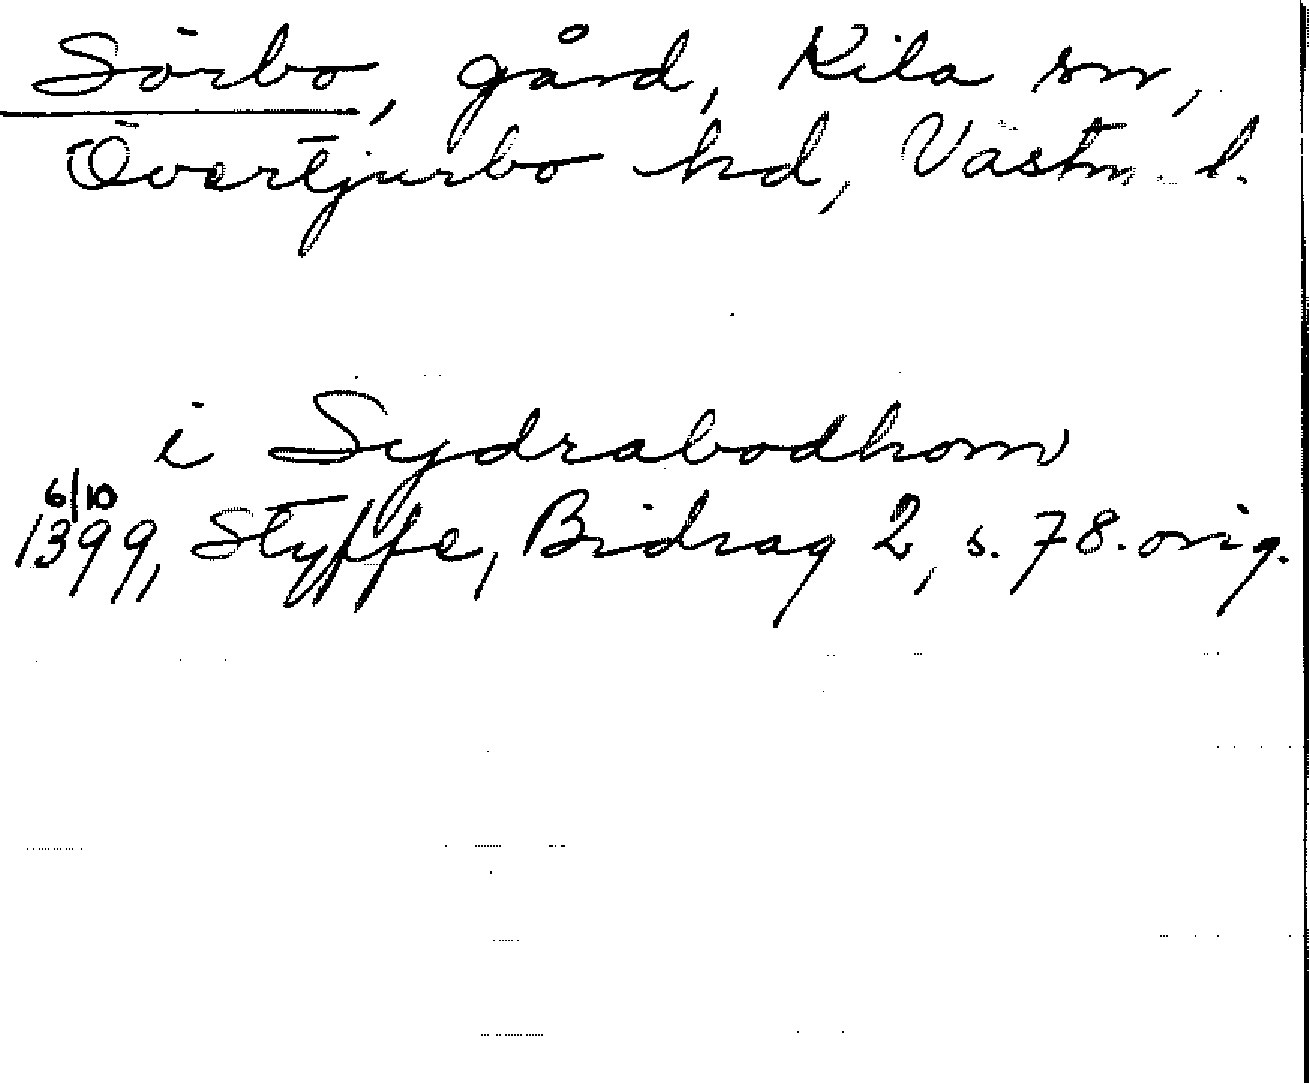 Sörbo, gård, Kila sn,
Övertjurbo hd, Västm. l.
i Sydrabodhom
6/10
1399, Styffe, Bidrag 2, s. 78. orig.